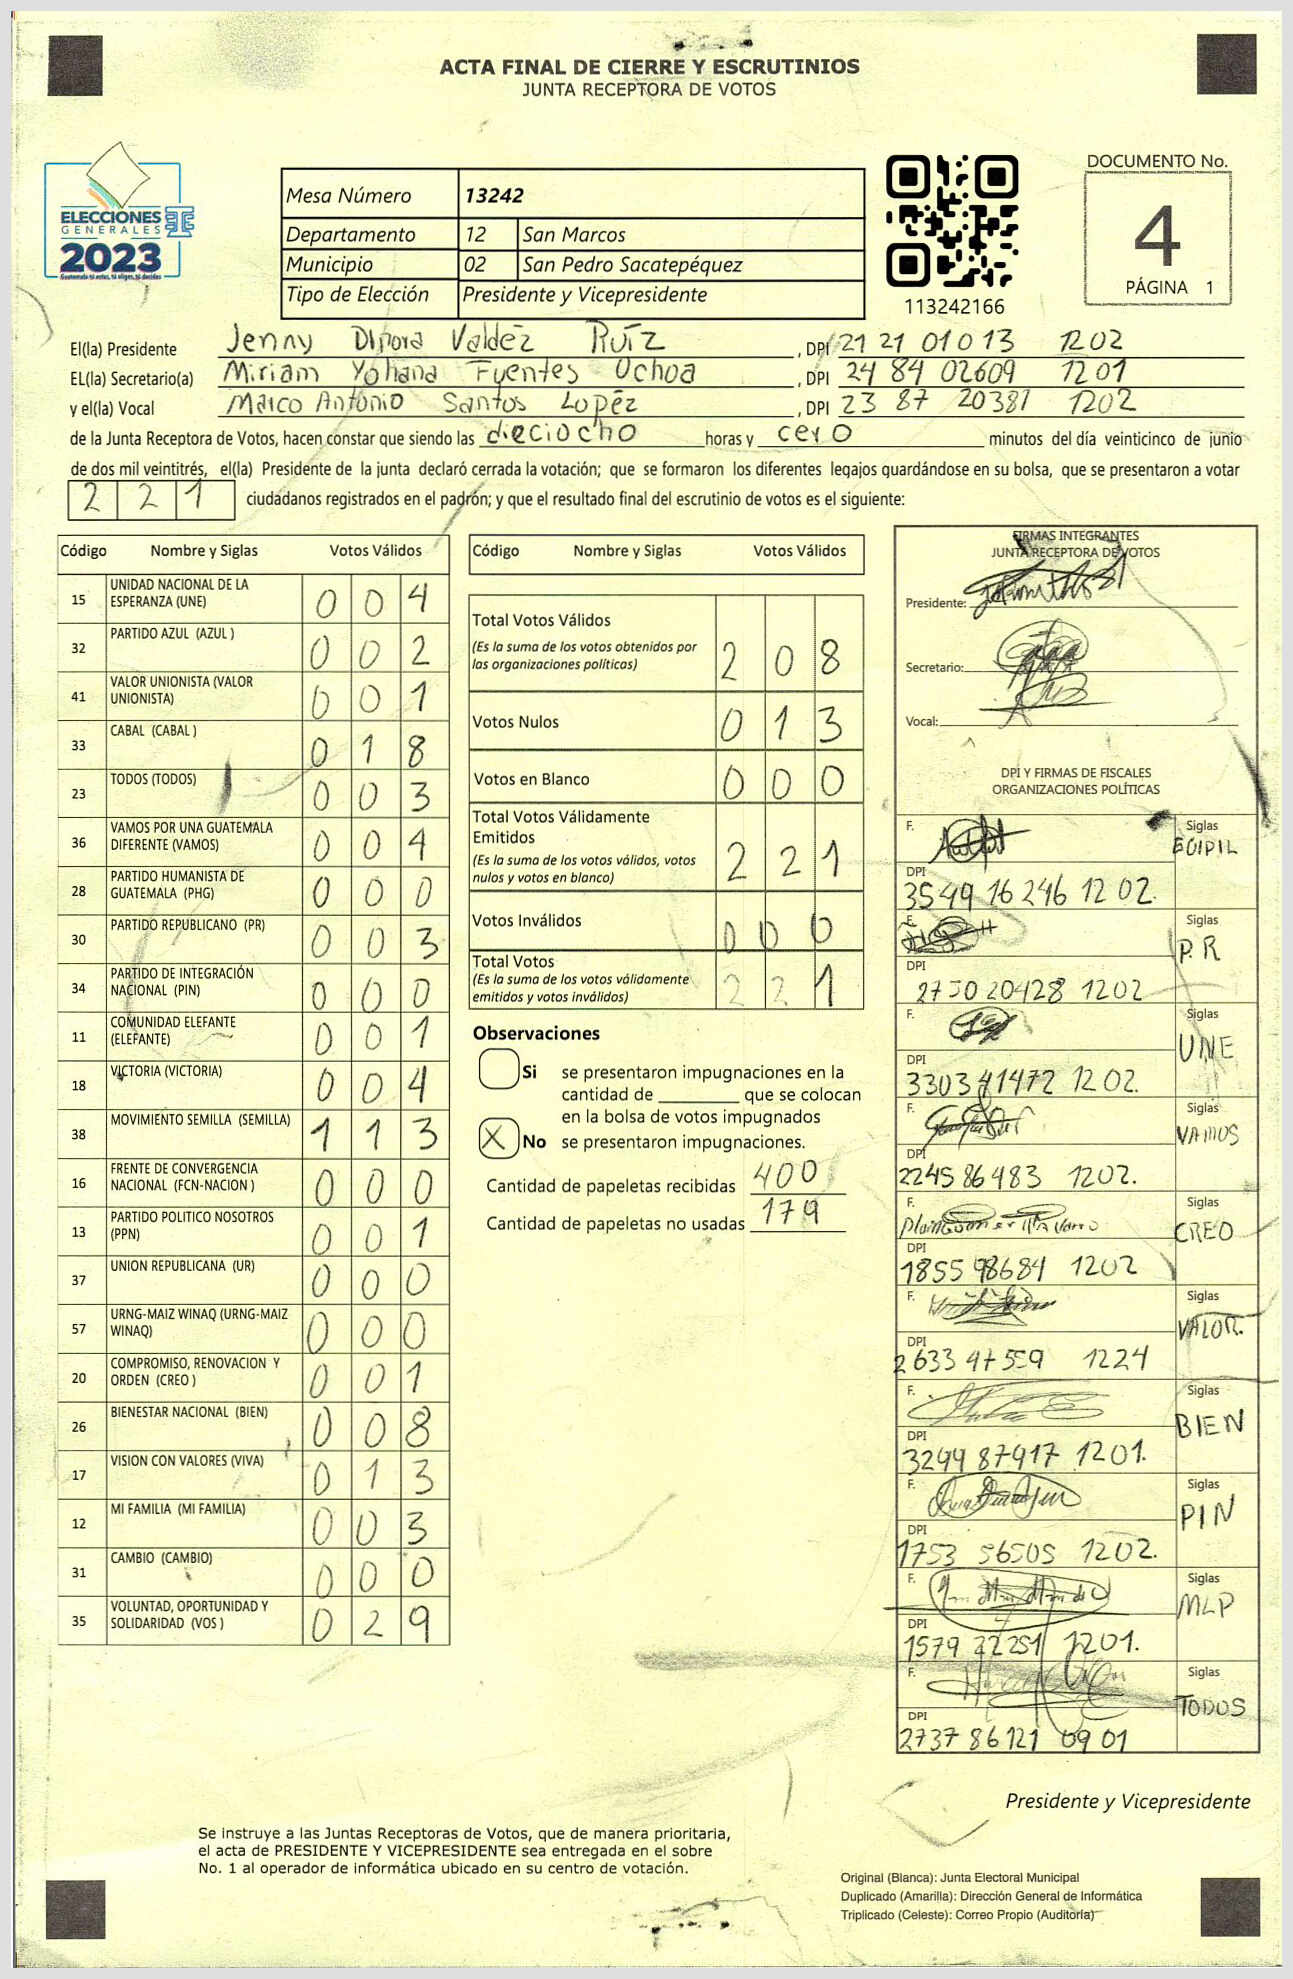 ACTA FINAL DE CIERRE Y ESCRUTINIOS
JUNTA RECEPTORA DE VOTOS
ELECCIONES
GENERALES
2023
Guatemala tú estás, tú eliges, tú decides
Mesa Número 13242
Departamento 12 San Marcos
Municipio 02 San Pedro Sacatepéquez
Tipo de Elección Presidente y Vicepresidente
113242166
DOCUMENTO No.
4
PÁGINA 1
El(la) Presidente Jenny Dinora Valdéz Ruíz , DPI 21 21 01013 1202
EL(la) Secretario(a) Miriam Yohana Fuentes Ochoa , DPI 24 84 02609 1201
y el(la) Vocal Marco Antonio Santos Lopéz , DPI 23 87 20381 1202
de la Junta Receptora de Votos, hacen constar que siendo las dieciocho horas y cero minutos del día veinticinco de junio
de dos mil veintitrés, el(la) Presidente de la junta declaró cerrada la votación; que se formaron los diferentes legajos guardándose en su bolsa, que se presentaron a votar
221 ciudadanos registrados en el padrón; y que el resultado final del escrutinio de votos es el siguiente:
Código Nombre y Siglas Votos Válidos
15 UNIDAD NACIONAL DE LA ESPERANZA (UNE) 004
32 PARTIDO AZUL (AZUL ) 002
41 VALOR UNIONISTA (VALOR UNIONISTA) 001
33 CABAL (CABAL ) 018
23 TODOS (TODOS) 003
36 VAMOS POR UNA GUATEMALA DIFERENTE (VAMOS) 004
28 PARTIDO HUMANISTA DE GUATEMALA (PHG) 000
30 PARTIDO REPUBLICANO (PR) 003
34 PARTIDO DE INTEGRACIÓN NACIONAL (PIN) 000
11 COMUNIDAD ELEFANTE (ELEFANTE) 001
18 VICTORIA (VICTORIA) 004
38 MOVIMIENTO SEMILLA (SEMILLA) 113
16 FRENTE DE CONVERGENCIA NACIONAL (FCN-NACION ) 000
13 PARTIDO POLITICO NOSOTROS (PPN) 001
37 UNION REPUBLICANA (UR) 000
57 URNG-MAIZ WINAQ (URNG-MAIZ WINAQ) 000
20 COMPROMISO, RENOVACION Y ORDEN (CREO ) 001
26 BIENESTAR NACIONAL (BIEN) 008
17 VISION CON VALORES (VIVA) 013
12 MI FAMILIA (MI FAMILIA) 003
31 CAMBIO (CAMBIO) 000
35 VOLUNTAD, OPORTUNIDAD Y SOLIDARIDAD (VOS ) 029
Código Nombre y Siglas Votos Válidos
Total Votos Válidos 208
(Es la suma de los votos obtenidos por
las organizaciones políticas)
Votos Nulos 013
Votos en Blanco 000
Total Votos Válidamente
Emitidos 221
(Es la suma de los votos válidos, votos
nulos y votos en blanco)
Votos Inválidos 000
Total Votos 221
(Es la suma de los votos válidamente
emitidos y votos inválidos)
Observaciones
Si se presentaron impugnaciones en la
cantidad de ________ que se colocan
en la bolsa de votos impugnados
X No se presentaron impugnaciones.
Cantidad de papeletas recibidas 400
Cantidad de papeletas no usadas 179
FIRMAS INTEGRANTES
JUNTA RECEPTORA DE VOTOS
Presidente:
Secretario:
Vocal:
DPI Y FIRMAS DE FISCALES
ORGANIZACIONES POLÍTICAS
F. Siglas
DPI
3549 16 246 12 02.
F. Siglas
P.R
DPI
2750 20428 1202
F. Siglas
UNE
DPI
3303 41472 12 02.
F. Siglas
VAMOS
DPI
2245 86483 1202.
F. Siglas
CREO
DPI
1855 98684 1202
F. Siglas
VALOR.
DPI
2633 47559 1224
F. Siglas
BIEN
DPI
3299 87917 1201.
F. Siglas
PIN
DPI
1753 56505 1202.
F. Siglas
MLP
DPI
1579 22251 1201.
F. Siglas
TODOS
DPI
2737 86121 0901
Presidente y Vicepresidente
Se instruye a las Juntas Receptoras de Votos, que de manera prioritaria,
el acta de PRESIDENTE Y VICEPRESIDENTE sea entregada en el sobre
No. 1 al operador de informática ubicado en su centro de votación.
Original (Blanca): Junta Electoral Municipal
Duplicado (Amarilla): Dirección General de Informática
Triplicado (Celeste): Correo Propio (Auditoría)